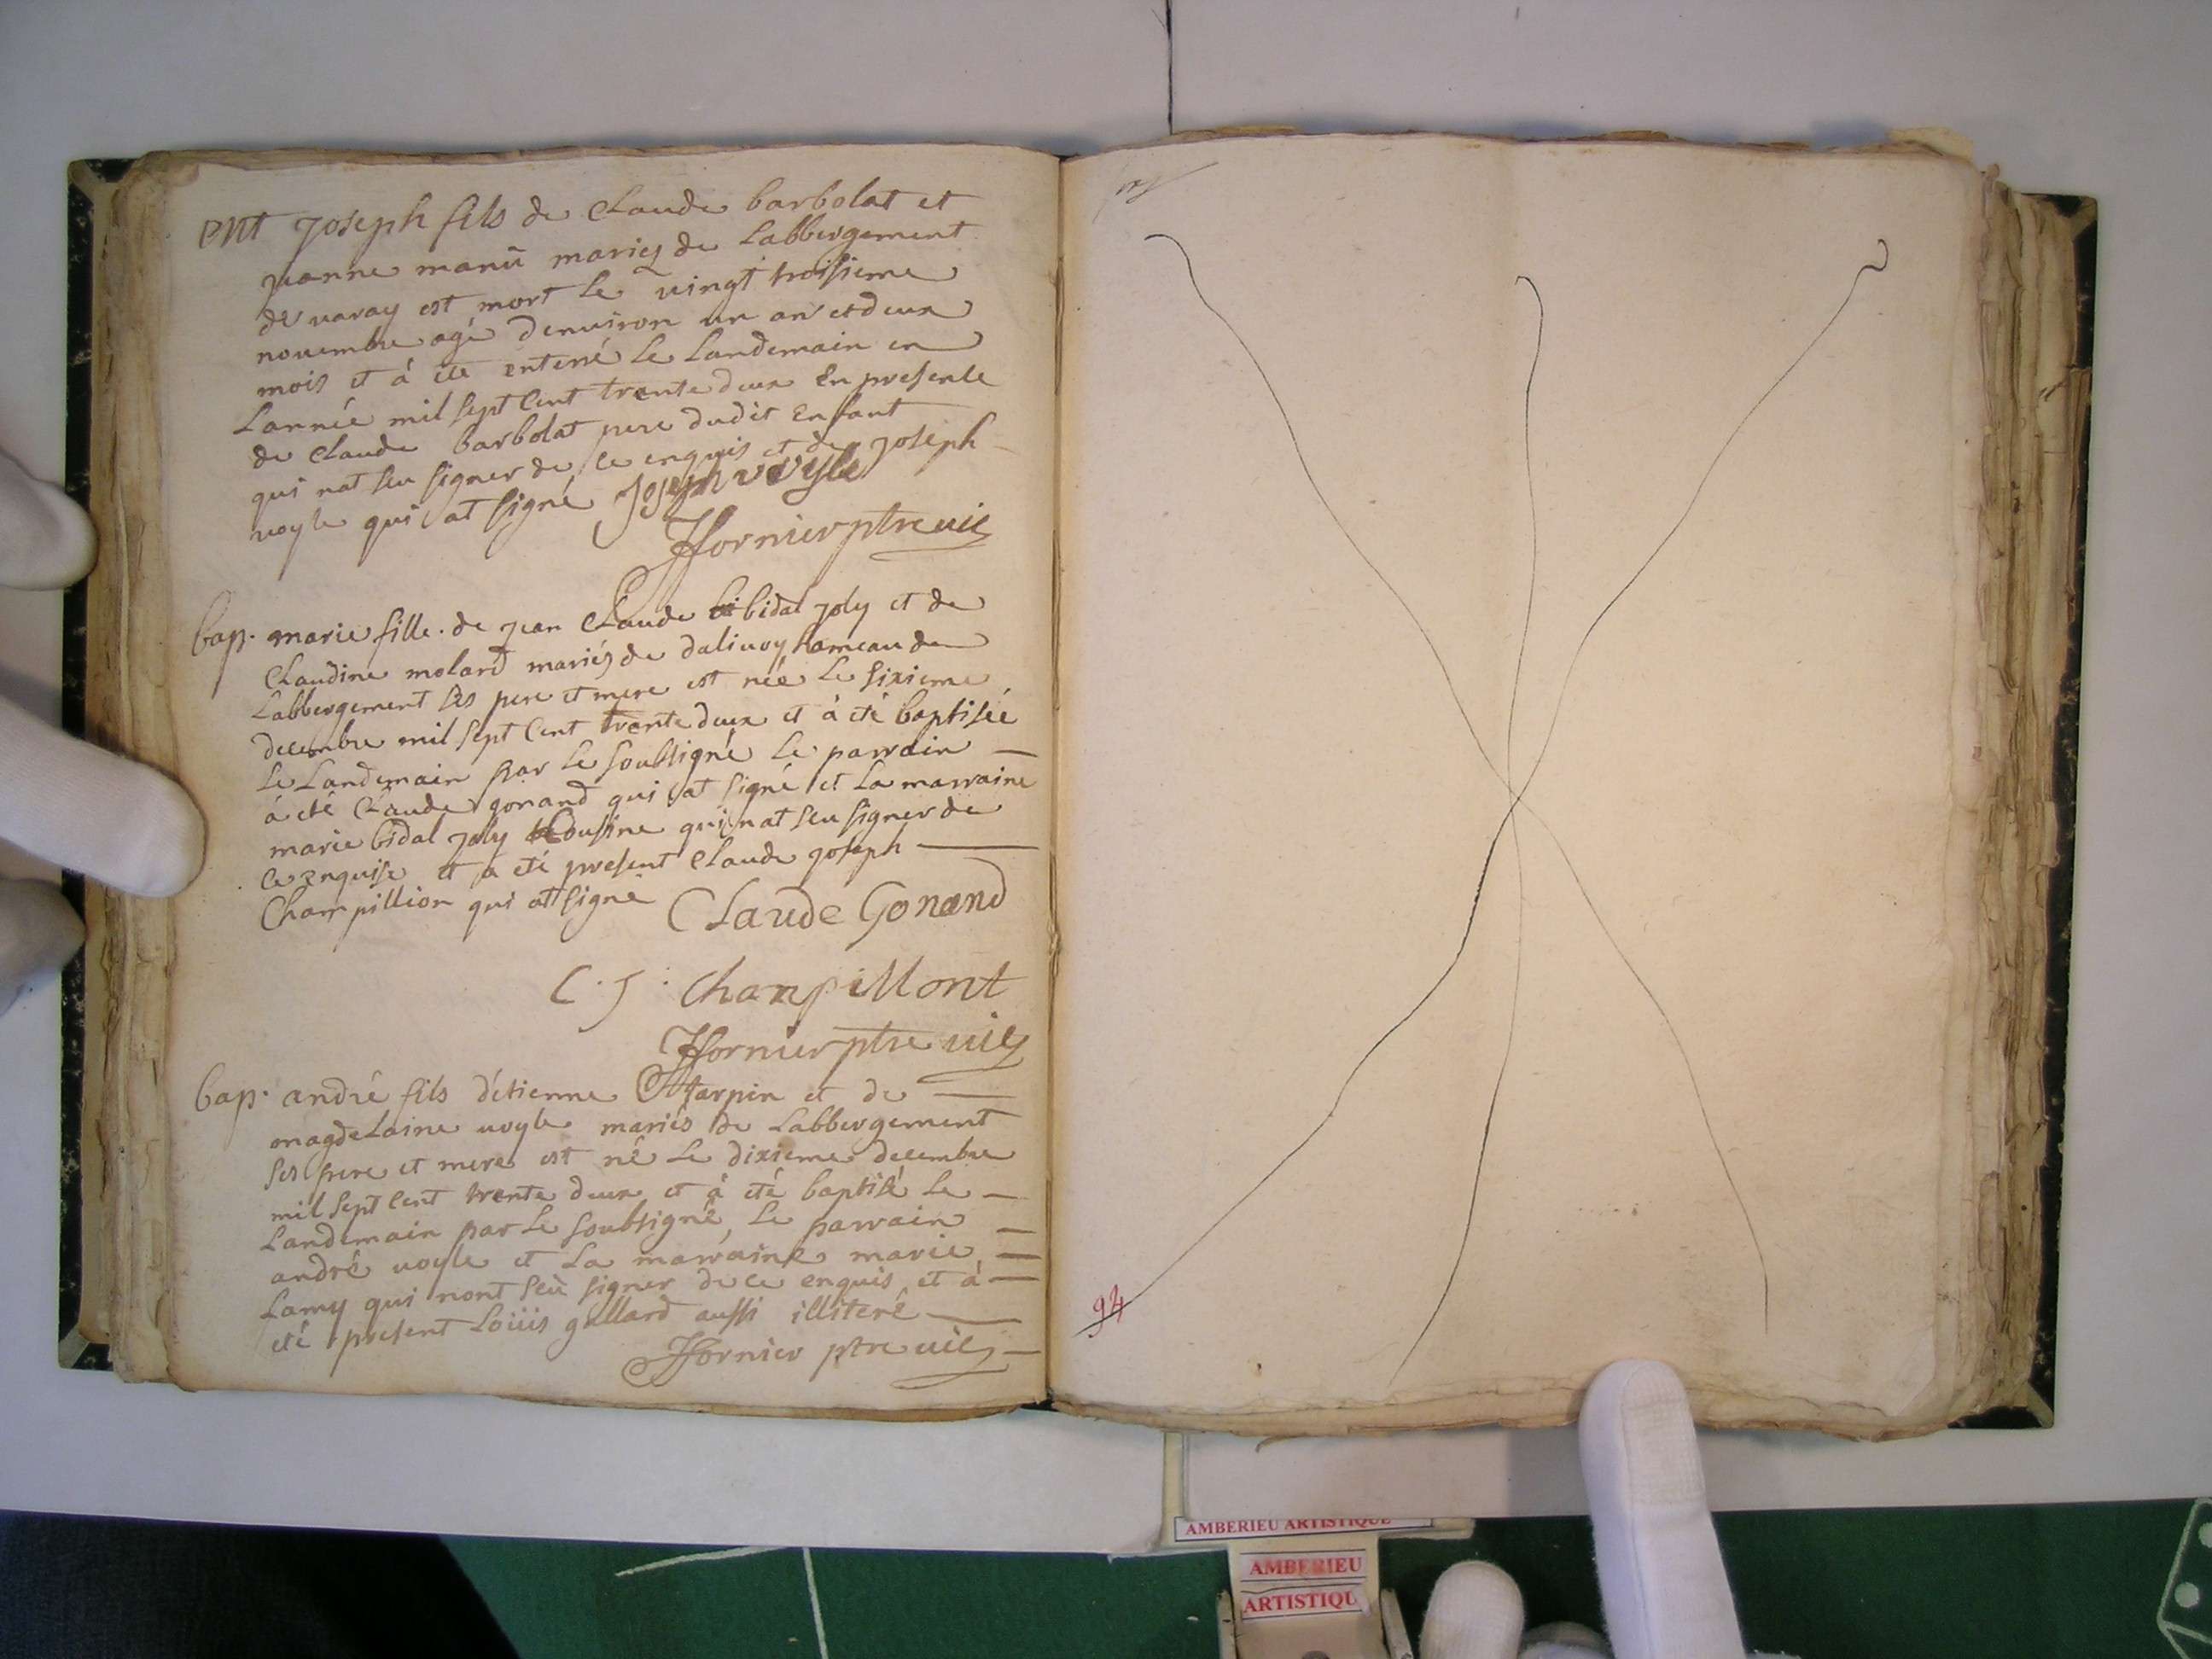 ent joseph fils de Claude barbolat et
jeanne manũ mariez de Labbergement
de varay est mort le vingt troisieme
novembre agé denviron un an et deux
mois et à été enterré le Landemain en
Lannée mil sept Cent trente deux En presence
de Claude barbolat pere dudit Enfant
qui nat sceu signer de ce enquis et de joseph
voyle qui at signé Joseph voyle
JFfornier ptre vic
bap. marie fille de jean Claude bidal joly et de
Claudine molard mariéz de dalivoy hameau de
Labbergement ses pere et mere est née le sixieme
decembre mil sept Cent trente deux et à été baptisée
le Landemain par le soubsigné le parrain
à été Claude gonand qui at signé et La marraine
marie bidal joly Cousine qui nat seu signer de
ce enquise et a eté present Claude joseph
Champillion qui at signé Claude Gonand
C. J : Champillont
JFfornier ptre vic
bap. andré fils détienne Tarpin et de
magdelaine voyle mariés de Labbergement
ses pere et mere est né le dixieme decembre
mil sept Cent trente deux et à été baptisé le
Landemain par le soubsigné, le parrain
andré voyle et La marraine marie
Lamy qui nont seu signer de ce enquis et à
eté present Loüis gallard aussi illiteré
JFfornier ptre vic
94
AMBERIEU ARTISTIQUE
AMBERIEU
ARTISTIQU